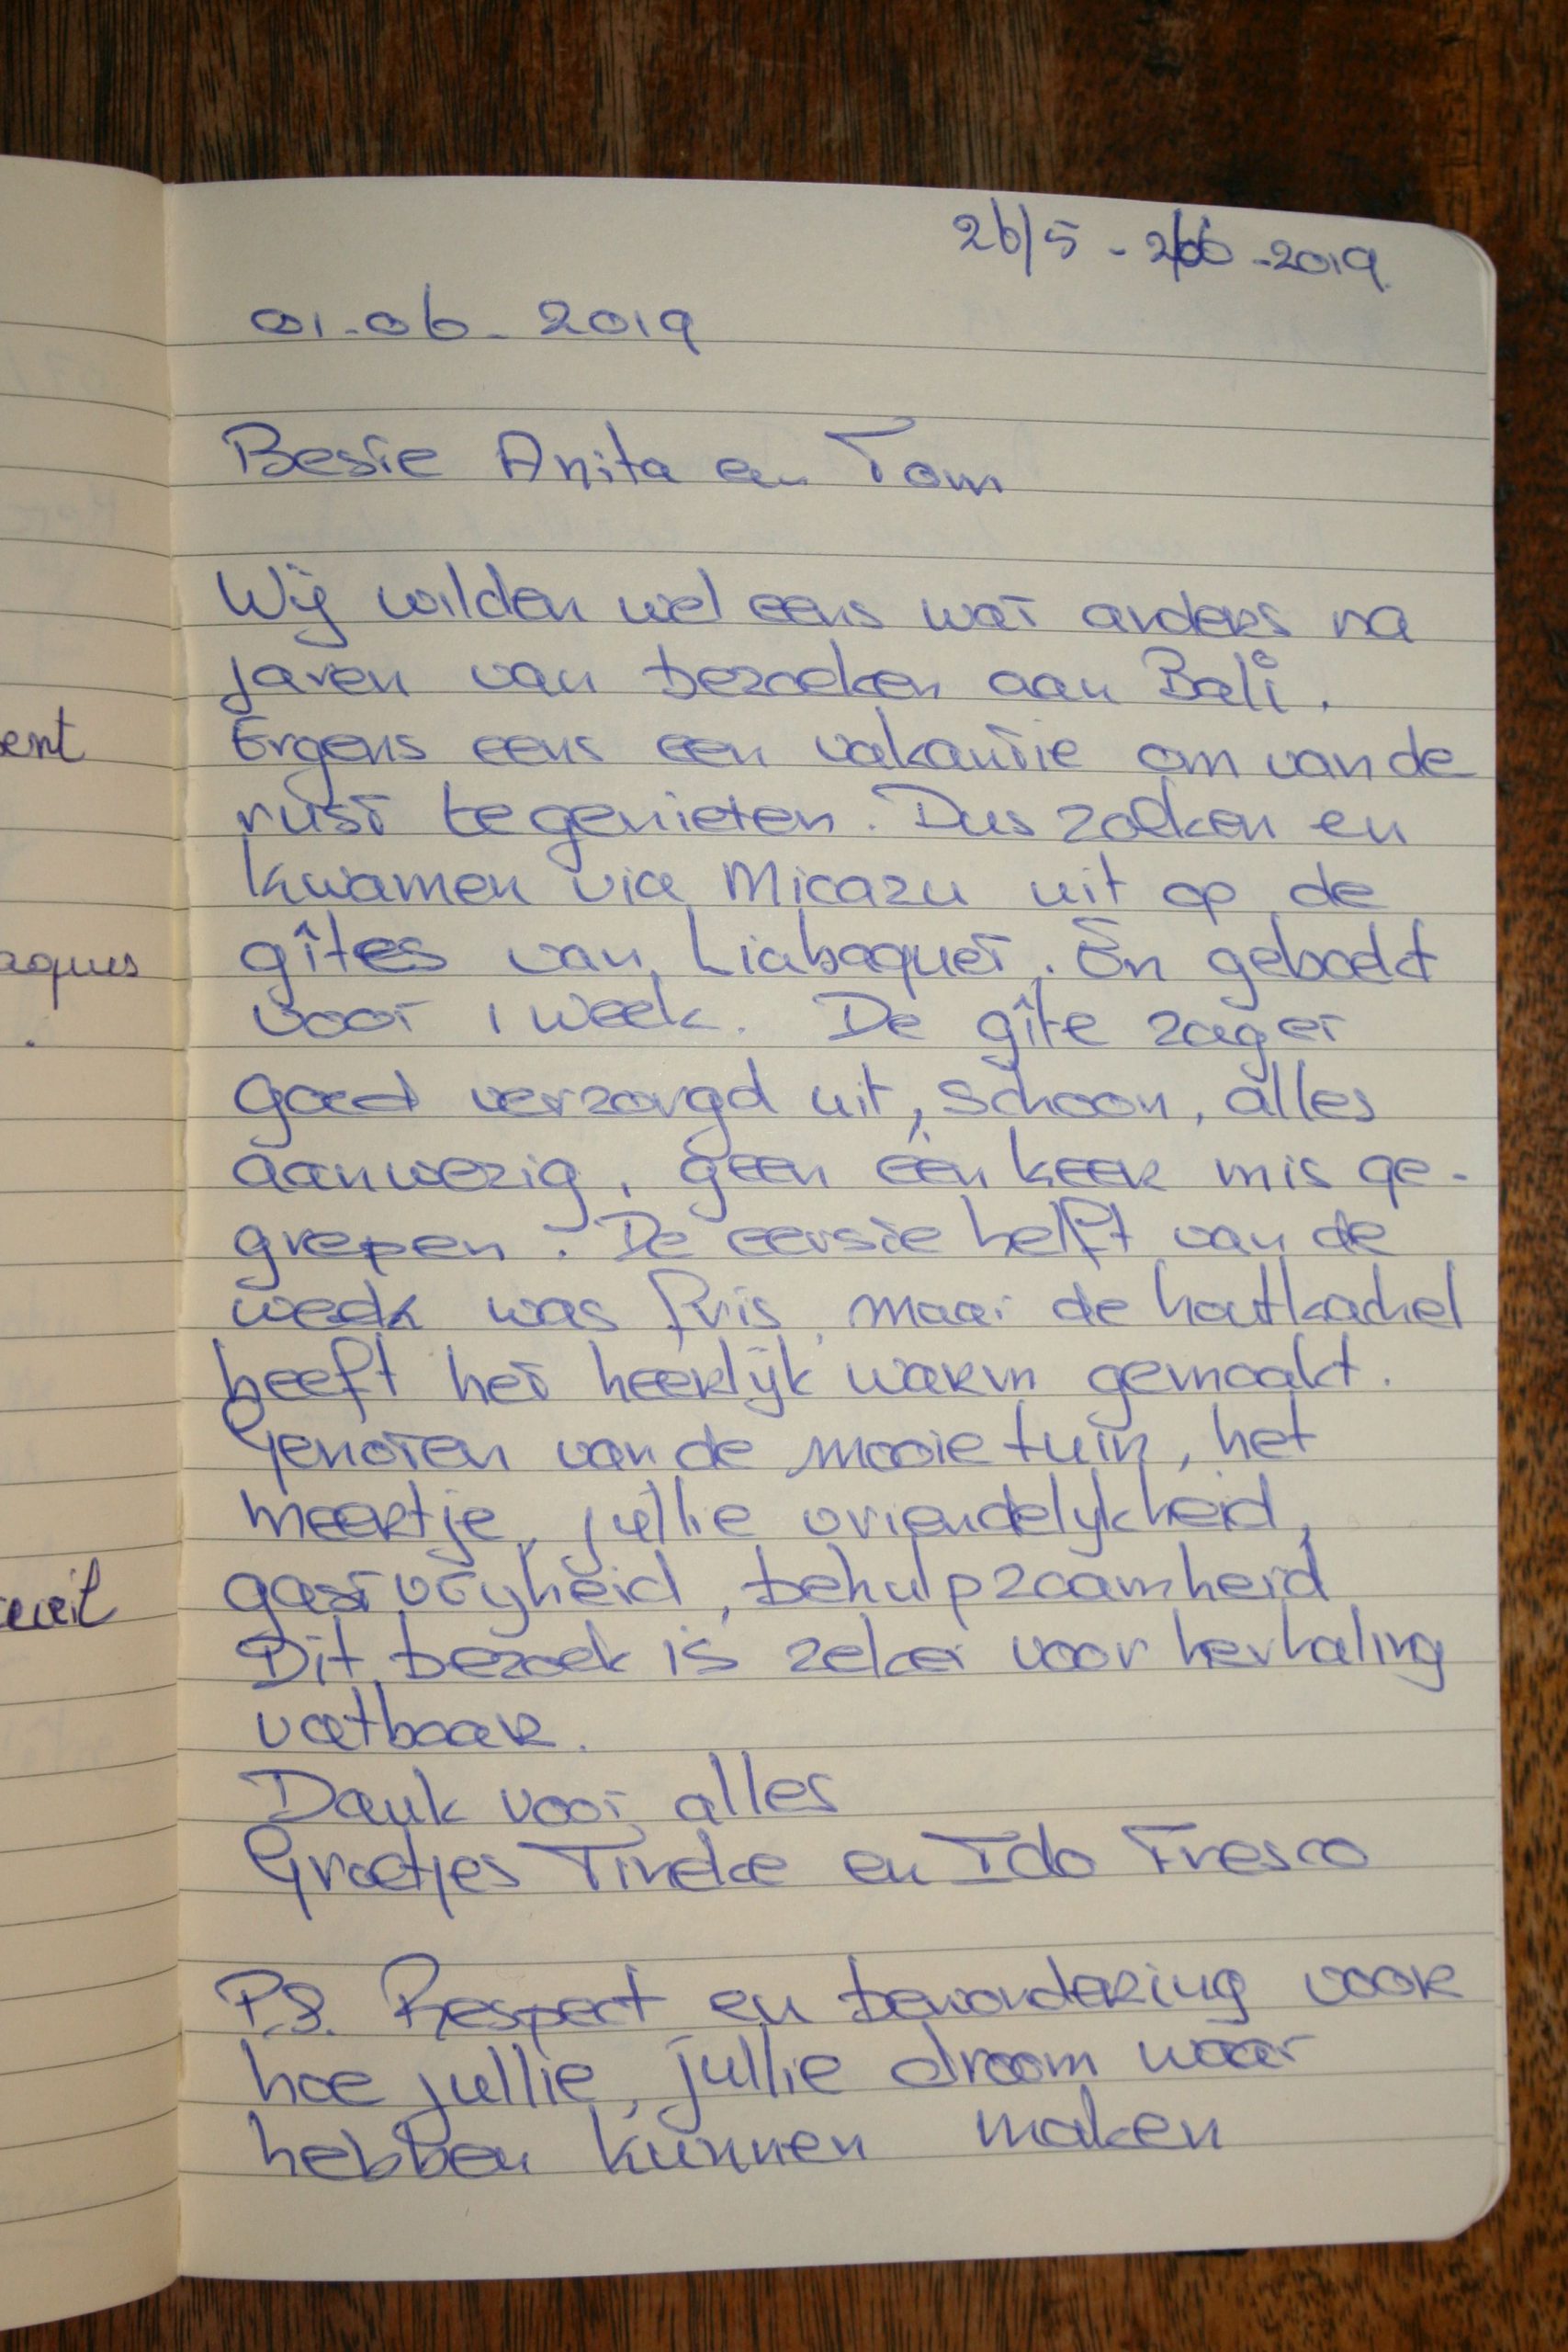 26/5 - 2/06 - 2019
01-06-2019
Beste Anita en Tom
Wij wilden wel eens wat anders na
jaren van bezoeken aan Bali.
Ergens eens een vakantie om van de
rust te genieten. Dus zoeken en
kwamen via Micazu uit op de
gîtes van Liabaquet. En geboekt
voor 1 week. De gîte zag er
goed verzorgd uit, schoon, alles
aanwezig, geen één keer mis ge-
grepen. De eerste helft van de
week was fris, maar de houtkachel
heeft het heerlijk warm gemaakt.
Genoten van de mooie tuin, het
meertje, jullie vriendelijkheid,
gastvrijheid, behulpzaamheid
Dit bezoek is zeker voor herhaling
vatbaar.
Dank voor alles
Groetjes Tineke en Ido Fresco
P.S. Respect en bewondering voor
hoe jullie, jullie droom waar
hebben kunnen maken
ent
aques